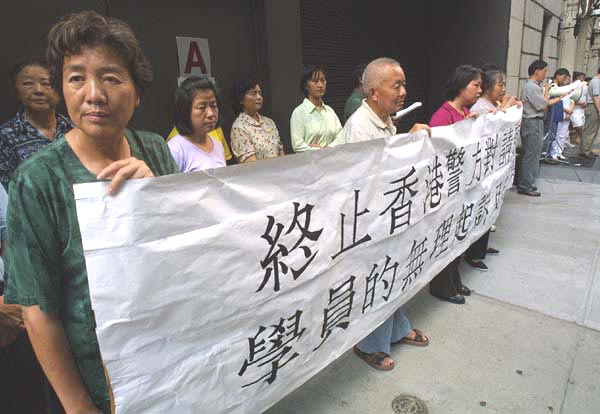 A
終止香港警方對
學員的無理起訴